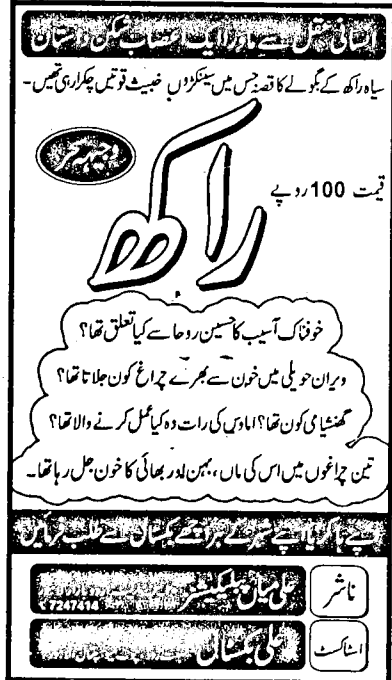 انسانی عقل سے ماورا ایک اعصاب شکن داستان
سیاہ راکھ کے بگولے کا قصہ جس میں سینکڑوں خبیث قوتیں چکرا رہی تھیں۔
وجیہہ سحر
قیمت 100 روپے
راکھ
خوفناک آسیب کا حسین روحا سے کیا تعلق تھا؟
ویران حویلی میں خون سے بھرے چراغ کون جلاتا تھا؟
گھنشیا می کون تھا؟ اماوس کی رات وہ کیا عمل کرنے والا تھا؟
تین چراغوں میں اس کی ماں، بہن اور بھائی کا خون جل رہا تھا۔
اپنے ہاکر یا اپنے شہر کے ہر اچھے بکسٹال سے طلب فرمائیں
ناشر
علی میاں پبلیکیشنز
7247414
اسٹاکسٹ
علی بکسٹال